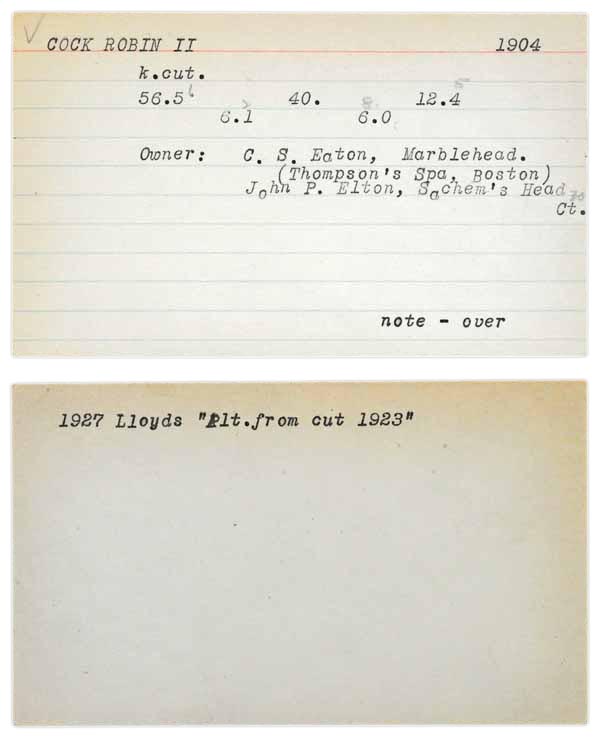 COCK ROBIN II 1904
k.cut.
56.5 40. 12.4
6.1 6.0
Owner: C. S. Eaton, Marblehead.
(Thompson's Spa, Boston)
John P. Elton, Sachem's Head
Ct.
note - over
1927 Lloyds "Alt.from cut 1923"